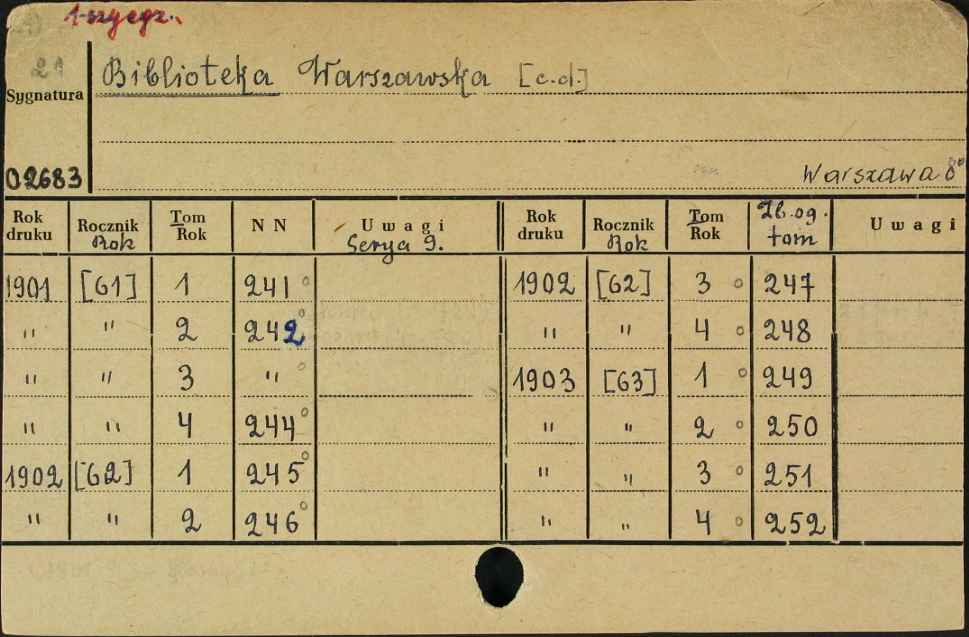 1-szy egz.
29
Biblioteka Warszawska [c.d.]
Sygnatura
02683
Warszawa 8°
Rok druku Rocznik Rok Tom Rok N N Uwagi Serya 9. Rok druku Rocznik Rok Tom Rok Zb. og. tom Uwagi
1901 [61] 1 241° 1902 [62] 3 ° 247
" " 2 242° " " 4 ° 248
" " 3 " ° 1903 [63] 1 ° 249
" " 4 244° " " 2 ° 250
1902 [62] 1 245° " " 3 ° 251
" " 2 246° " " 4 ° 252